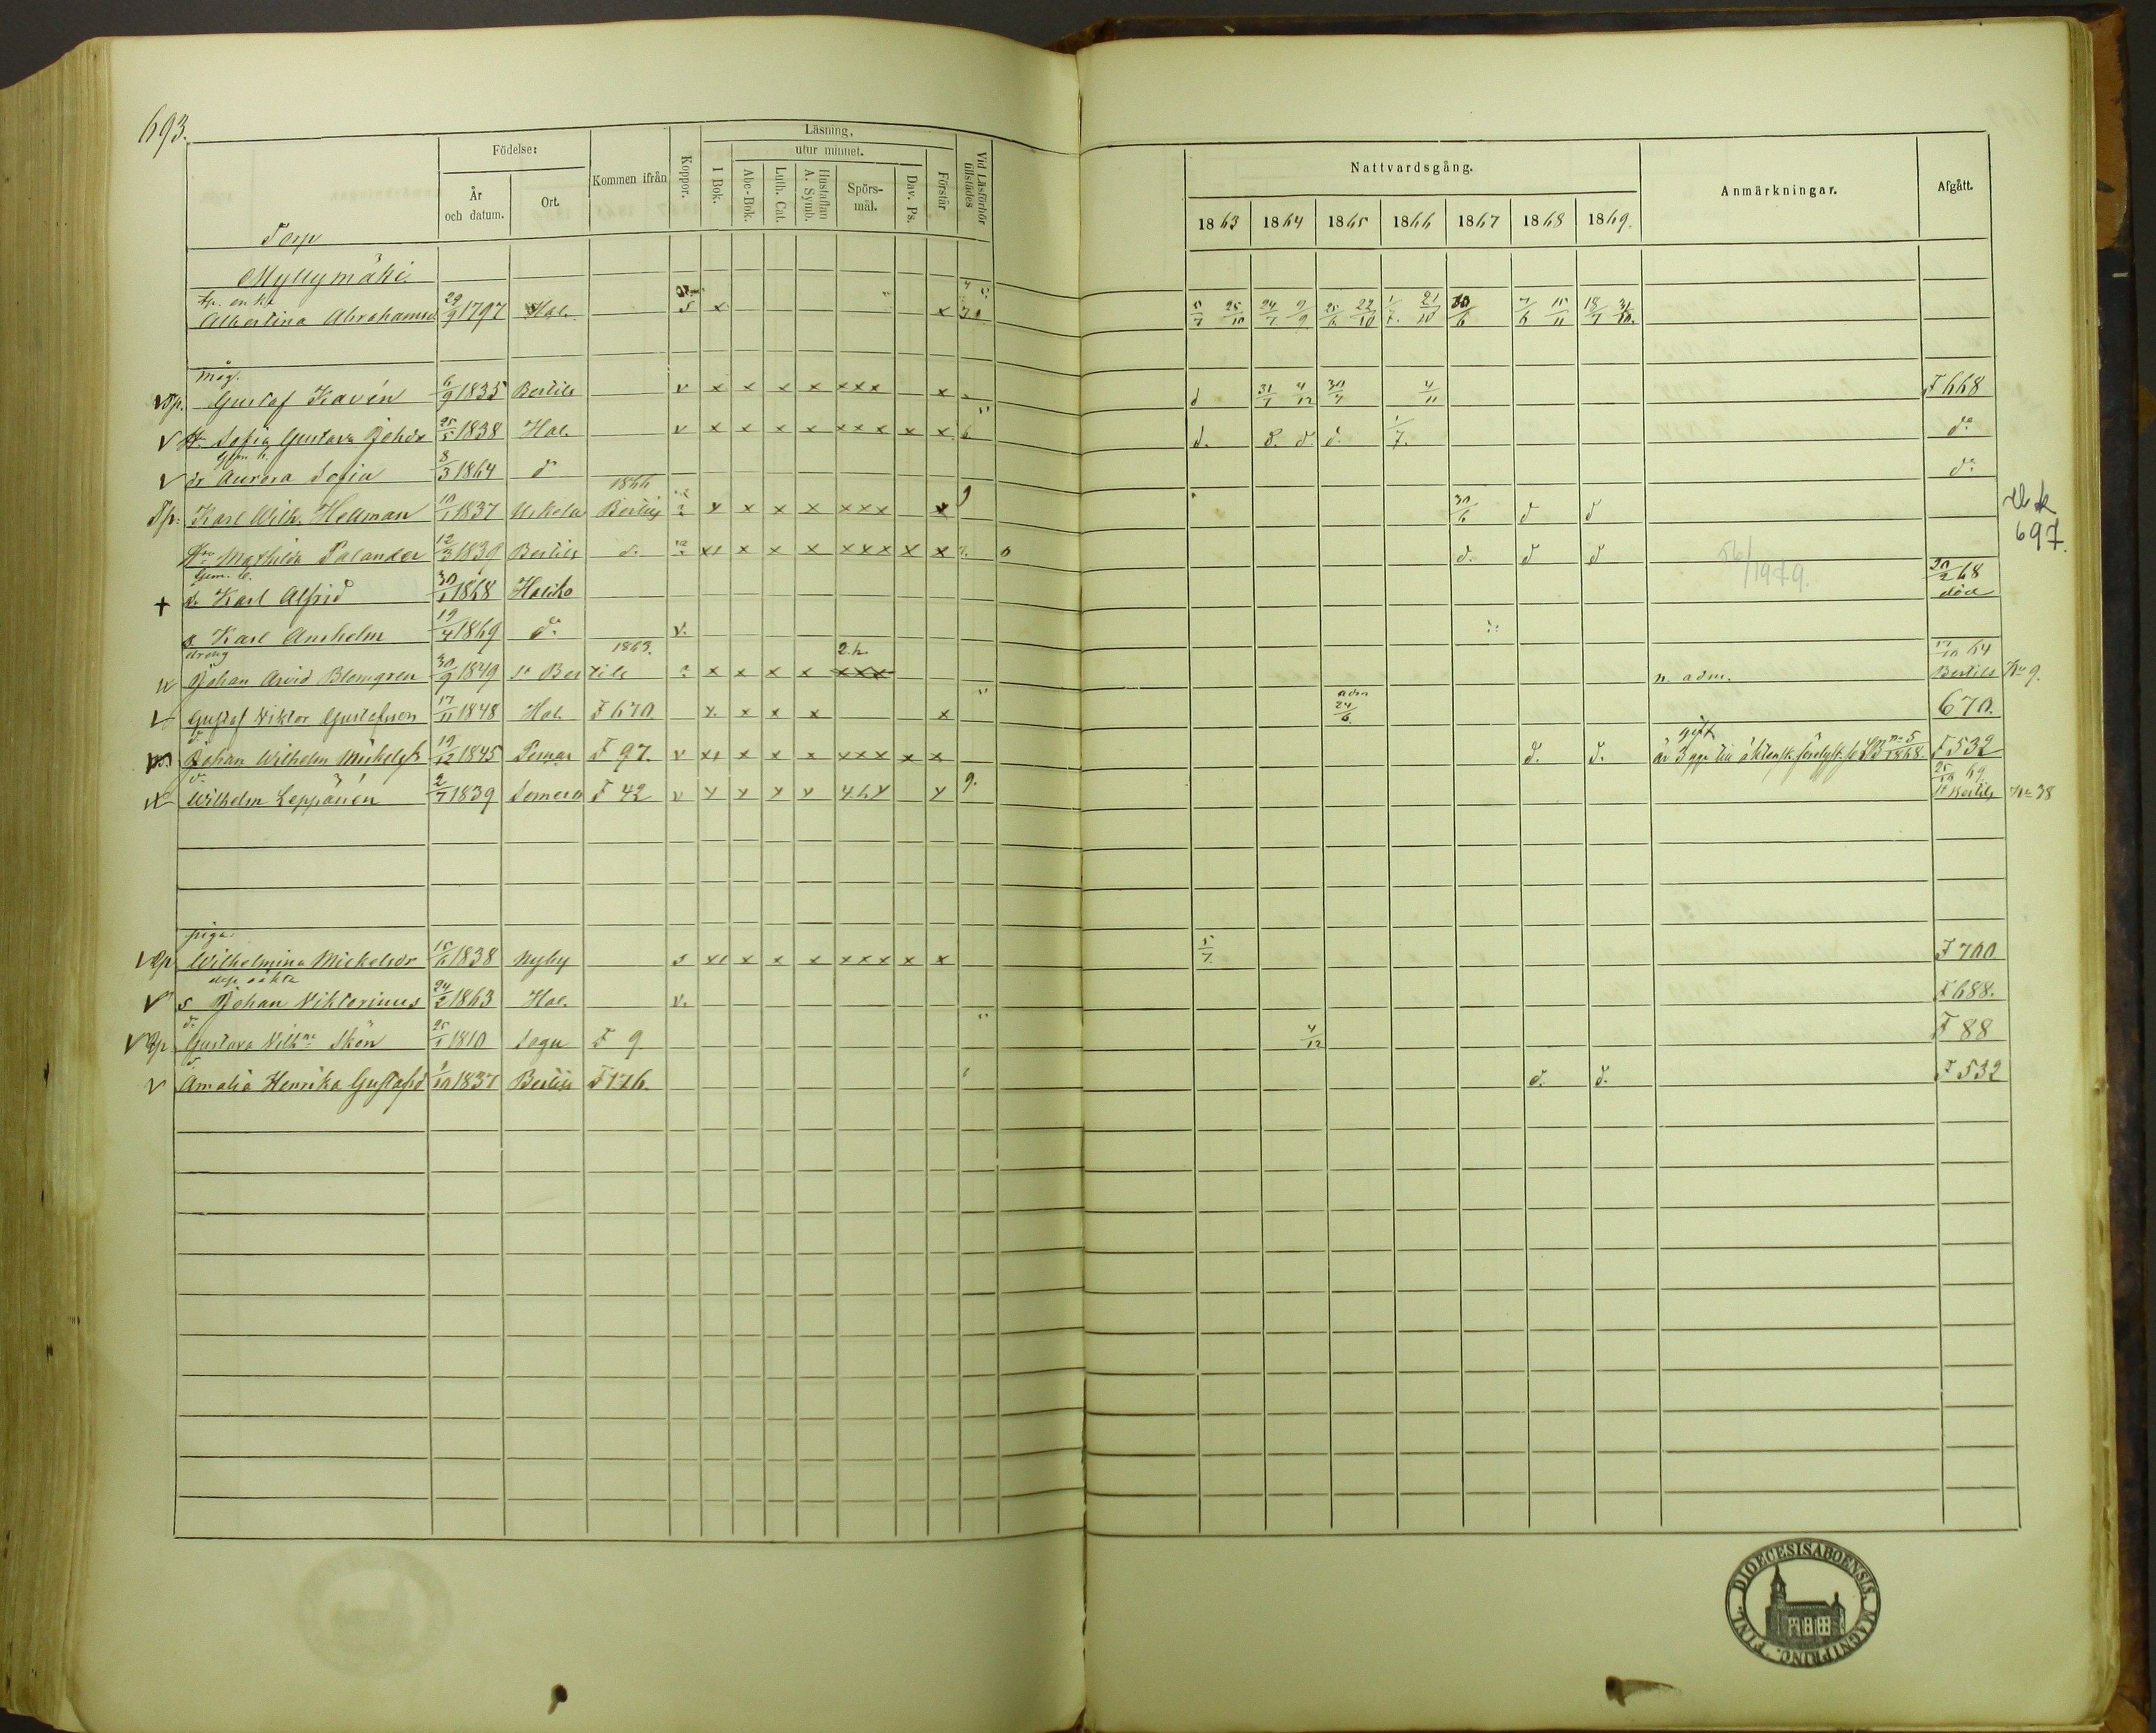 693.
Födelse:
År och datum.
Ort.
Kommen ifrån
Koppor.
Läsning,
I Bok.
utur minnet.
Abc-Bok.
Luth. Cat.
Hustaflan A. Symb.
Spörsmål.
Dav. Ps.
Förstår
Vid Läsförhör tillstädes
Nattvardsgång.
1863 1864 1865 1866 1867 1868 1869.
Anmärkningar.
Afgått.
Torp
Myllymäki.
Albertina Abrahamsd 29/9 1797 Hal. s x x 5/7 25/10 24/7 9/9 25/6 22/10 1/7. 21/10 30/6 7/6 15/11 18/7 31/10.
måg.
Gustaf Kavén 6/9 1835 Bertils v x x x x xxx x d 31/7 4/12 30/7 4/11 F 668
Sofia Gustava Johdr 25/5 1838 Hal. v x x x x xxx x x d. 8. d. d. 1/7. do
dr Aurora Sofia 8/3 1864 do do
1866
Karl Wilh. Hellman 10/1 1837 Uskela Bertils x x x x xxx x 9 30/6 d d
697.
Mathilda Palander 12/3 1839 Bertils d. x x x xxx x x d. d d
56/1979.
Karl Alfrid 30/1 1868 Haliko 20/2 68 död
s. Karl Anshelm 19/4 1869 do v.
dräng 1863. 2.h.
Johan Arvid Blomgren 30/9 1849 St Bertils x x x x xxx n. adm. 64 Bertils No 9.
adm
Gustaf Viktor Gustafsson 17/11 1848 Hal. F 670 x. x x x x 24/6. 670.
gift
Johan Wilhelm Mickelss 19/12 1845 Pemar F 97. v x x x xxx x x d. d. är 3 gga till äktensk. 1868. F 532
Wilhelm Leppänén 2/7 1839 Somero F 42 v x x x x x 9. 25/10 69 St Bertils No 38
piga
Wilhelmina Mickelsdr 15/6 1838 Nyby s x x x xxx x x 5/7. F 700
s Johan Viktorinus 24/2 1863 Hal. v. F 688.
Gustava Wilhna Skön 25/5 1810 Sagu F 9 4/12 F 88
Amalia Henrika Gustafsd 1837 Bertils F 176. d. d. F 532
DIOECESIS ABOENSIS MAGNI PRINC. FINL.